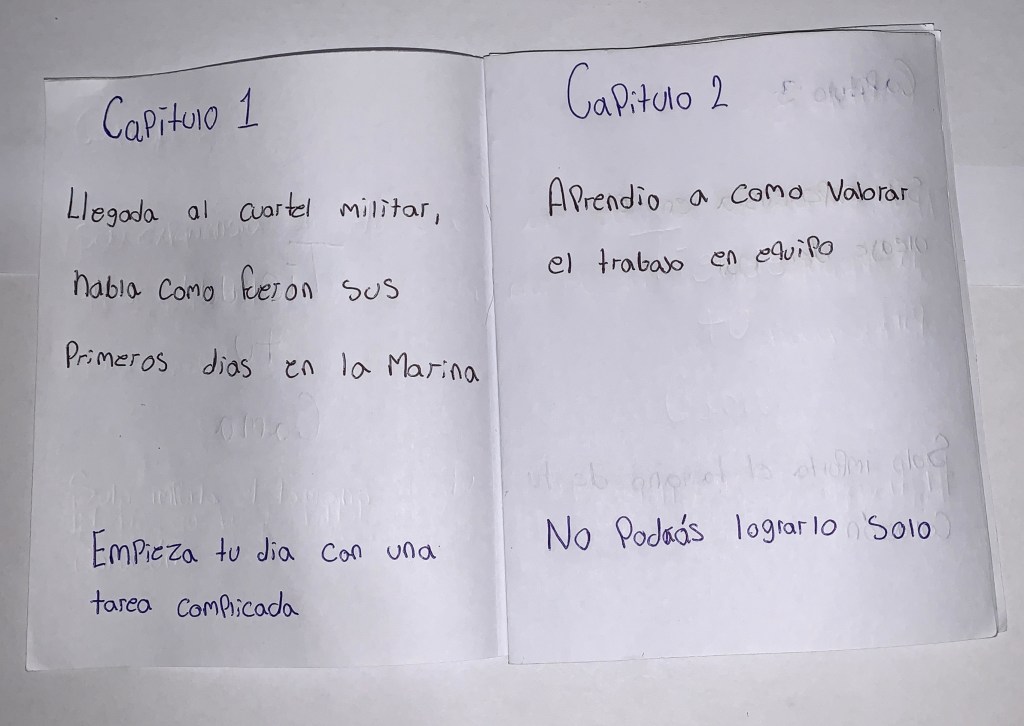 Capitulo 1
Llegada al cuartel militar,
habla como fueron sus
Primeros dias en la Marina
Empieza tu dia con una
tarea complicada
Capitulo 2
APrendio a como valorar
el trabajo en equipo
No Podrás lograrlo solo